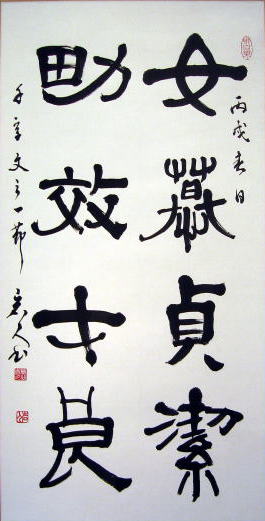 女慕貞潔
男效才良
丙戌春日
千字文之一節